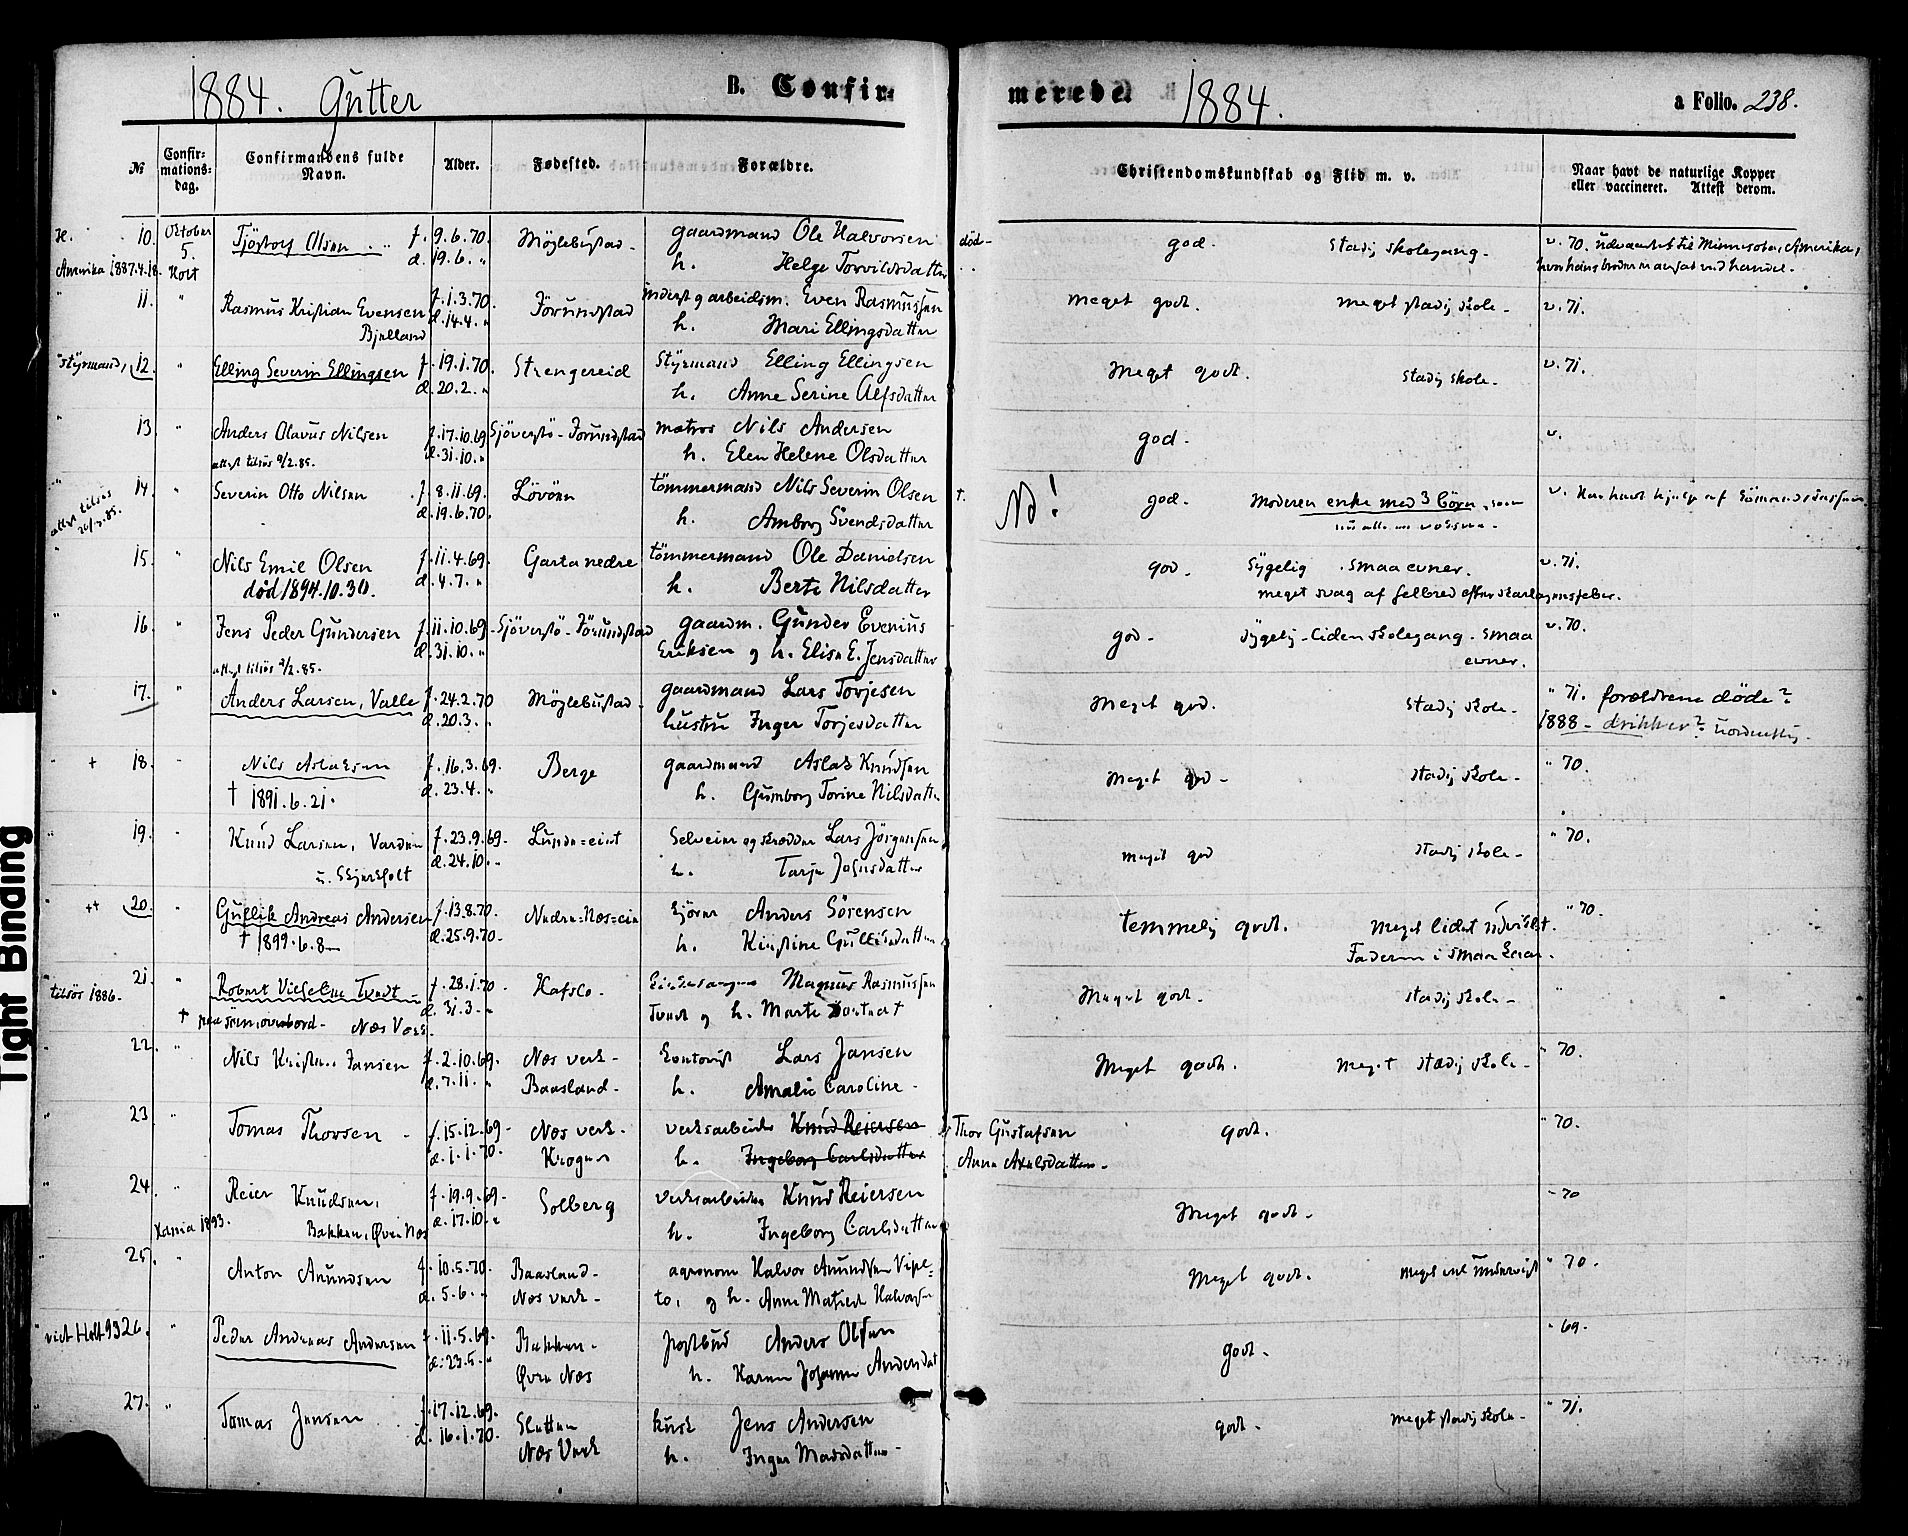 1884. Gutter B. Confir- merede. 1884. a Folio. 238.
№ Confir-mations-dag. Confirmandens fulde Navn. Alder. Fødested. Forældre. Christendomskundskab og Flid m. v. Naar havt de naturlige Kopper eller vaccineret. Attest derom.
10. Oktober Tjöstors Olsen f. 9.6.70. Möglebustad. gaardmand Ole Halvorsen død god. stadig skolegang. v. 70. til Minnesota, Amerika,
Amerika 1887.4.18. 5. Holt d. 19.6. " h. Helge Torvildsdatter
11. " Rasmus Kristian Evensen f. 1.3.70. Förundstad inderst og arbeidsm. Even Rasmussen meget godt. meget stadig skole. v. 71.
Bjelland d. 14.4. " h. Mari Ellingsdatter
styrmand, 12. " Elling Severin Ellingsen f. 19.1.70. Strengereid Styrmand Elling Ellingsen Meget godt. stadig skole. v. 71.
d. 20.2. " h. Anne Serine Alfsdatter
13. " Anders Olavus Nilsen f. 17.10.69 Sjöverstö-Förundstad matros Nils Andersen god. v.
attest tilsös 9/2.85. d. 31.10. " h. Elen Helene Olsdatter
14. " Severin Otto Nilsen f. 8.11.69. Lövöen tömmermand Nils Severin Olsen †. NB! god. Moderen enke med 3 börn, som v.
attest tilsös d. 19.6.70. h. Amborg Svendsdatter nu alle er voksne.
15. " Nils Emil Olsen f. 11.4.69. Garta nedre tömmermand Ole Danielsen god. Sygelig. smaa evner. v. 71.
död 1894.10.30. d. 4.7. " h. Berte Nilsdatter meget svag af efter skarlagensfeber.
16. " Jens Peder Gundersen f. 11.10.69 Sjöverstö-Förundstad gaardm. Gunder Evenius god. sygelig. liden skolegang. smaa v. 70.
attest tilsös 9/2.85. d. 31.10. " Eriksen og h. Elise E. Jensdatter evner.
17. " Anders Larsen, Valle f. 24.2.70 Möglebustad. gaardmand Lars Torjesen Meget god. stadig skole. " 71. forældrene døde?
d. 20.3. " hustru Inger Torjesdatter 1888 - drikker?
+ 18. " Nils Aslaksen f. 16.3.69. Berge gaardmand Aslak Knudsen Meget god. stadig skole. " 70.
† 1891.6.21. d. 23.4. " h. Gunborg Torine Nilsdatter
19. " Knud Larsen, Varden f. 23.9.69. Lunde=eiet Selveier og skrædder Lars Jörgensen, meget god stadig skole. " 70.
u. d. 24.10. " h. Tarje Johnsdatter
++ 20. " Gullik Andreas Andersen f. 13.8.70. Nedre=Næs=eie Sjömr Anders Sörensen temmelig godt. Meget lidet udviklet. " 70.
† 1899.6.8 d. 25.9.70. h. Kirstine Gulliksdatter Faderen i smaa kaar.
21. " Robert Vilhelm Tvedt f. 28.1.70 Hafslo. Magnus Rasmussen Meget godt. stadig skole. "
tilsös 1886. † overbord. Næs Værk. d. 31.3. " Tvedt og h. Marte
22. " Nils Jansen f. 2.10.69. Næs verk. Kontorist Lars Jansen Meget godt. Meget stadig skole. " 70.
d. 7.11. " Baasland. h. Amalie Caroline.
23 " Tomas Thorsen f. 15.12.69 Næs verk. verksarbeider Knud Reiersen Thor Gustafsen godt. " 70.
d. 1.1.70. h. Ingeborg Carlsdatter Anne Axelsdatter.
24 " Reier Knudsen, f. 19.9.69 Solberg verksarbeider Knud Reiersen Meget godt. " 70
1893. Bakken, Øvre Næs d. 17.10. " h. Ingeborg Carlsdatter
25. " Anton Anundsen f. 10.5.70. Baasland. agronom Halvor Anundsen Meget godt. Meget undervist " 70.
d. 5.6. " Næs verk. og h. Anne
26. " Peder Andreas Andersen f. 11.5.69. Bakken. postbud Anders Olsen godt. " 69.
d. 23.5. " Øvre Næs h. Karen Johanne Andersdat
27. " Tomas Jensen f. 17.12.69. Sletten kusk Jens Andersen godt. meget stadig skole. " 71.
d. 16.1.70. Næs Verk h. Inger Madsdatter
Tight Binding